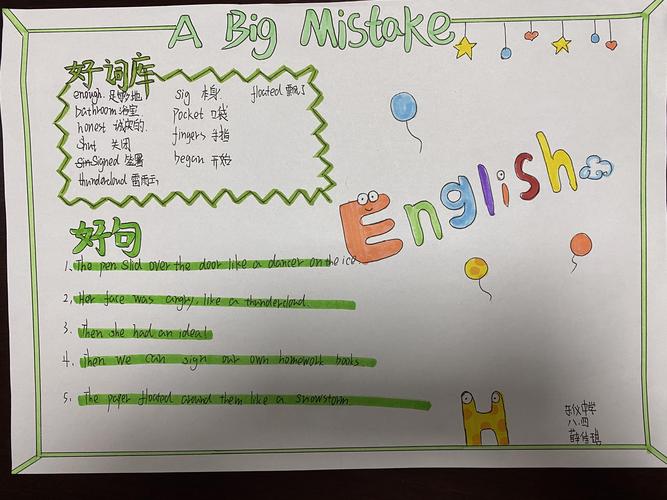 A Big Mistake
好词库
enough 足够地 sig 本身 floated 飘了
bathroom 浴室 pocket 口袋
honest 诚实的 fingers 手指
shut 关闭 began 开始
Signed 签署
thundercloud 雷雨云
English
好句
1. The pen slid over the door like a dancer on the ice.
2. Her face was angry, like a thundercloud.
3. Then she had an idea!
4. Then we can sign our own homework books.
5. The paper floated around them like a snowstorm.
H
中学
八.四